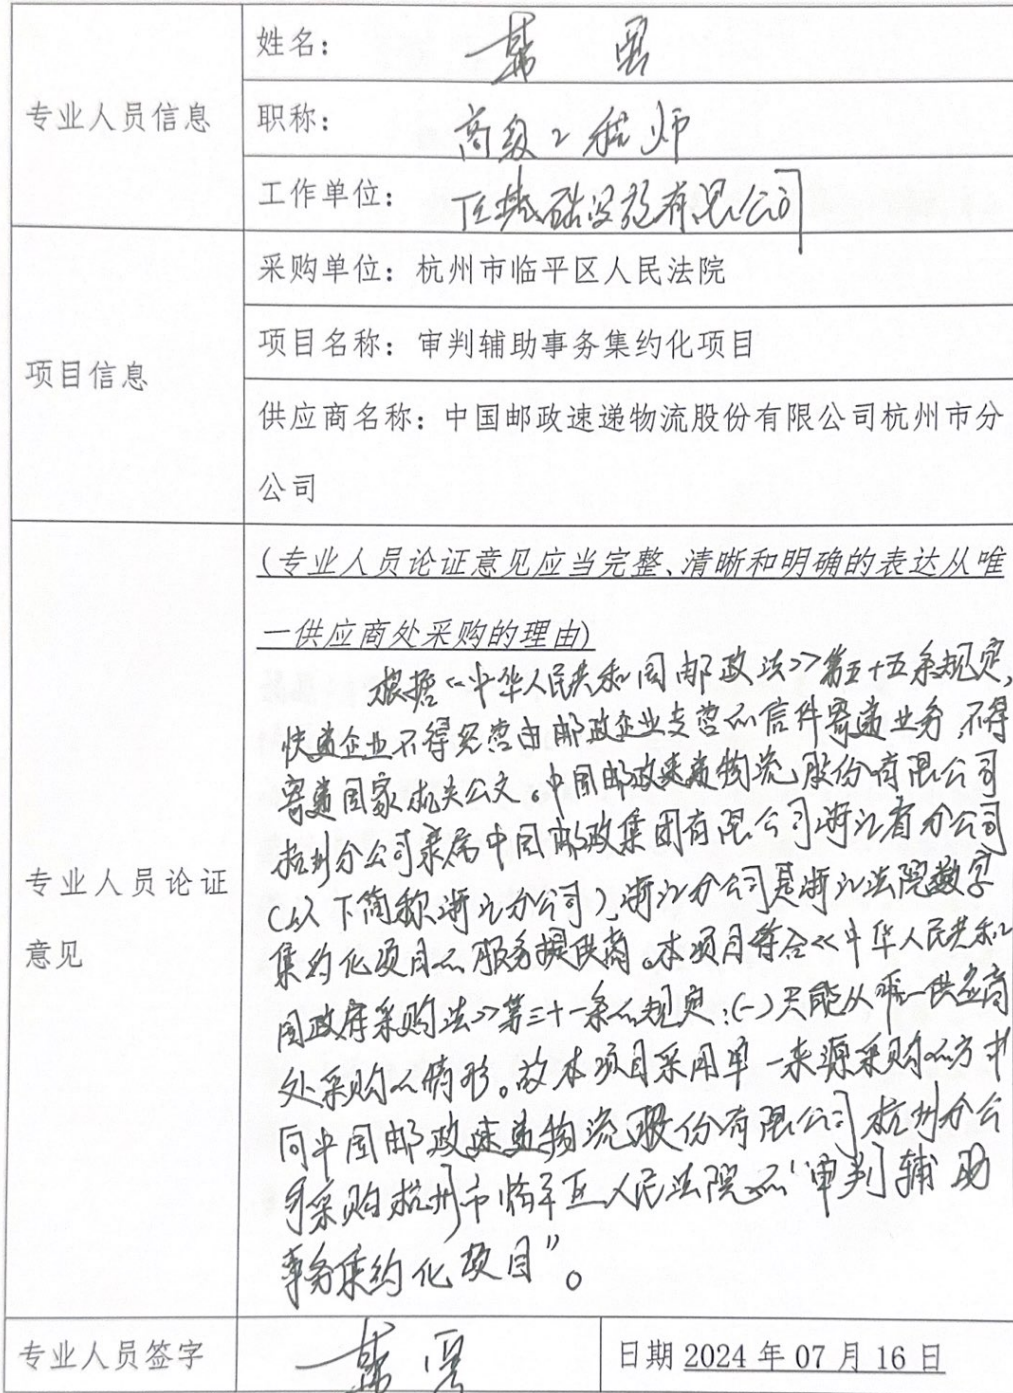 专业人员信息
姓名：
职称： 高级工程师
工作单位： 基础设施有限公司
项目信息
采购单位：杭州市临平区人民法院
项目名称：审判辅助事务集约化项目
供应商名称：中国邮政速递物流股份有限公司杭州市分
公司
专业人员论证
意见
(专业人员论证意见应当完整、清晰和明确的表达从唯
一供应商处采购的理由)
根据《中华人民共和国邮政法》第五十五条规定,
快递企业不得经营由邮政企业专营的信件寄递业务,不得
寄递国家机关公文。中国邮政速递物流股份有限公司
杭州分公司隶属中国邮政集团有限公司浙江省分公司
(以下简称浙江分公司),浙江分公司是浙江法院数字
集约化项目的服务提供商。本项目符合《中华人民共和
国政府采购法》第三十一条的规定:(一)只能从唯一供应商
处采购的情形。故本项目采用单一来源采购的方式
向中国邮政速递物流股份有限公司杭州分公
司采购杭州市临平区人民法院的“审判辅助
事务集约化项目”。
专业人员签字
日期 2024 年 07 月 16 日